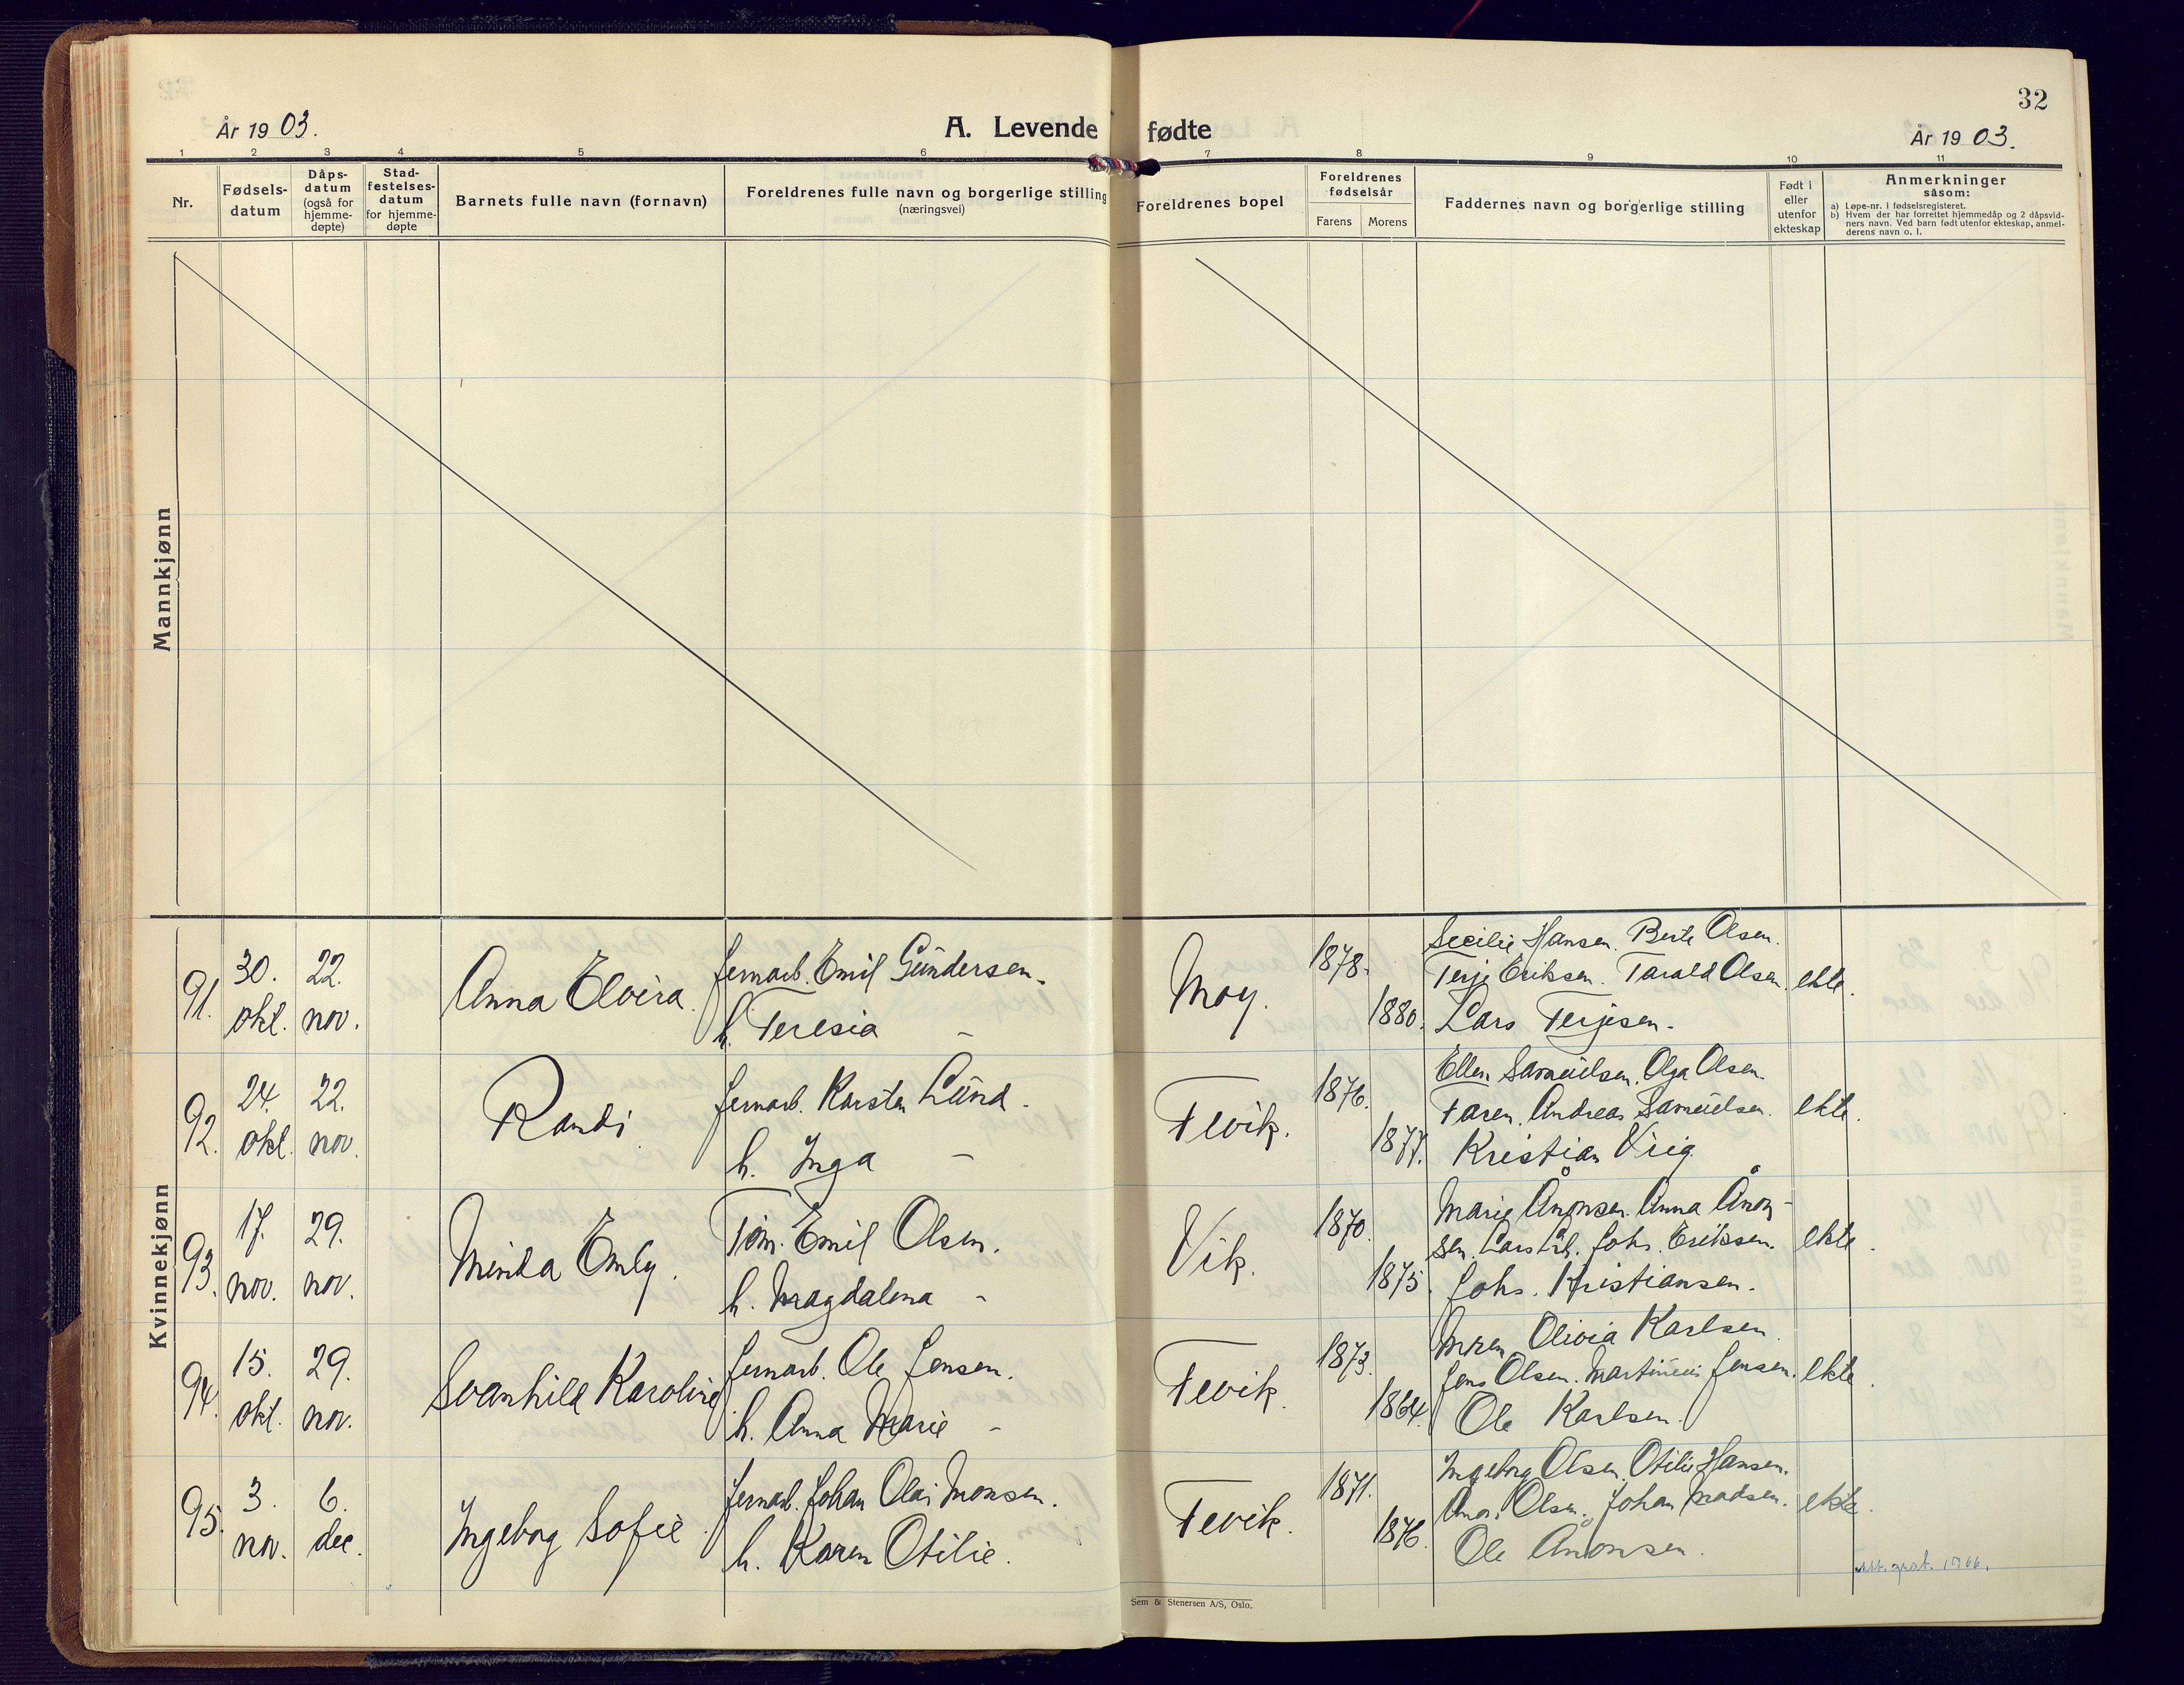 32
År 1903.
A. Levende fødte
År 1903.
1 2 3 4 5 6 7 8 9 10 11
Nr.
Fødsels-
datum
Dåps-
datum
(også for
hjemme-
døpte)
Stad-
festelses-
datum
for hjemme-
døpte
Barnets fulle navn (fornavn)
Foreldrenes fulle navn og borgerlige stilling
(næringsvei)
Foreldrenes bopel
Foreldrenes
fødselsår
Farens
Morens
Faddernes navn og borgerlige stilling
Født i
eller
utenfor
ekteskap
Anmerkninger
såsom:
a) Løpe-nr. i fødselsregisteret.
b) Hvem der har forrettet hjemmedåp og 2 dåpsvid-
ners navn. Ved barn født utenfor ekteskap, anmel-
derens navn o. l.
Mannkjønn
Kvinnekjønn
91.
30.
okt.
22.
nov.
Anna Elvira.
jernarb. Emil Gundersen.
h. Teresia –
Moy.
1878.
1880.
Secilie Hansen. Berte Olsen.
Terje Eriksen. Tarald Olsen.
Lars Terjesen.
ekte.
92.
24.
okt.
22.
nov.
Randi
jernarb. Karsten Lund.
h. Inga –
Fevik.
1876.
1877.
Ellen Samuelsen. Olga Olsen.
Faren. Andreas Samuelsen.
Kristian Vrig.
ekte.
93.
17.
nov.
29.
nov.
Minda Emly.
Tøm. Emil Olsen.
h. Magdalena –
Vik.
1870.
1875.
Marie Ånonsen. Anna Ånon-
sen. Lars Johs. Eriksen.
Johs. Kristiansen.
ekte.
94.
15.
okt.
29.
nov.
Svanhild Karoline
jernarb. Ole Jensen.
h. Anna Marie –
Fevik.
1873.
1864.
Olivia Karlsen.
Jens Olsen. Martinius Jensen.
Ole Karlsen.
ekte.
95.
3.
nov.
6.
dec.
Ingeborg Sofie.
jernarb. Johan Olai Monsen.
h. Karen Otilie.
Fevik.
1871.
1876.
Ingeborg Olsen. Otilie Hansen.
Olsen. Johan Madsen.
Ole Ånonsen.
ekte.
1966.
Sem & Stenersen A/S, Oslo.